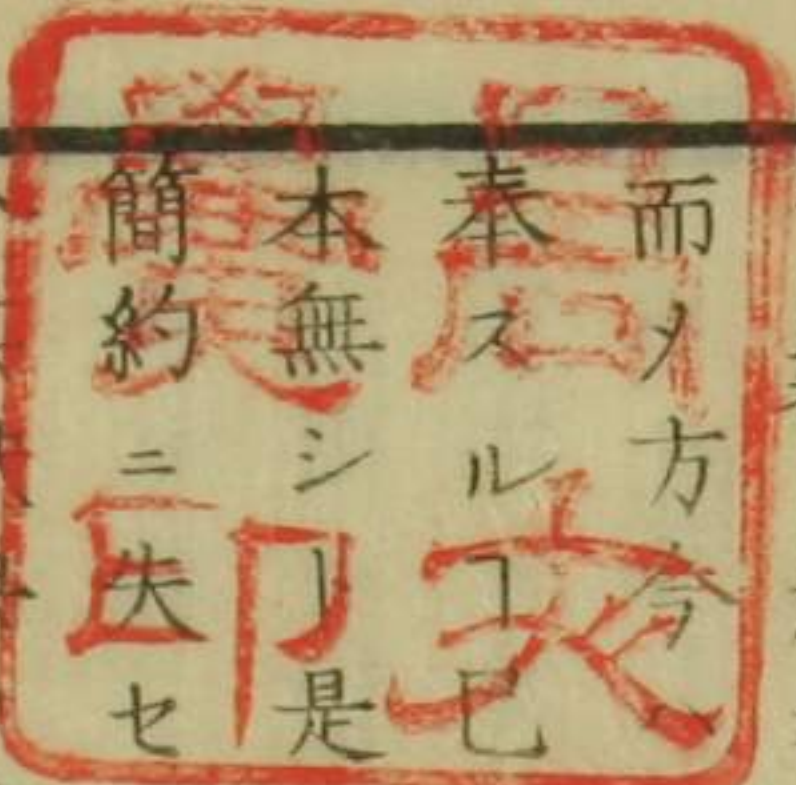 而メ方今ハ
奉スルヿ已
本無シ一是
簡約ニ失セ